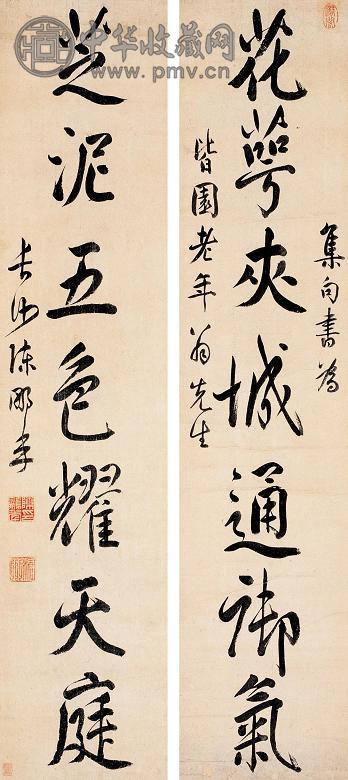 中华收藏网
www.pmv.cn
集句書為
花萼夾城通御氣
皆園老年翁先生
芝泥五色耀天庭
長沙陳鵬年